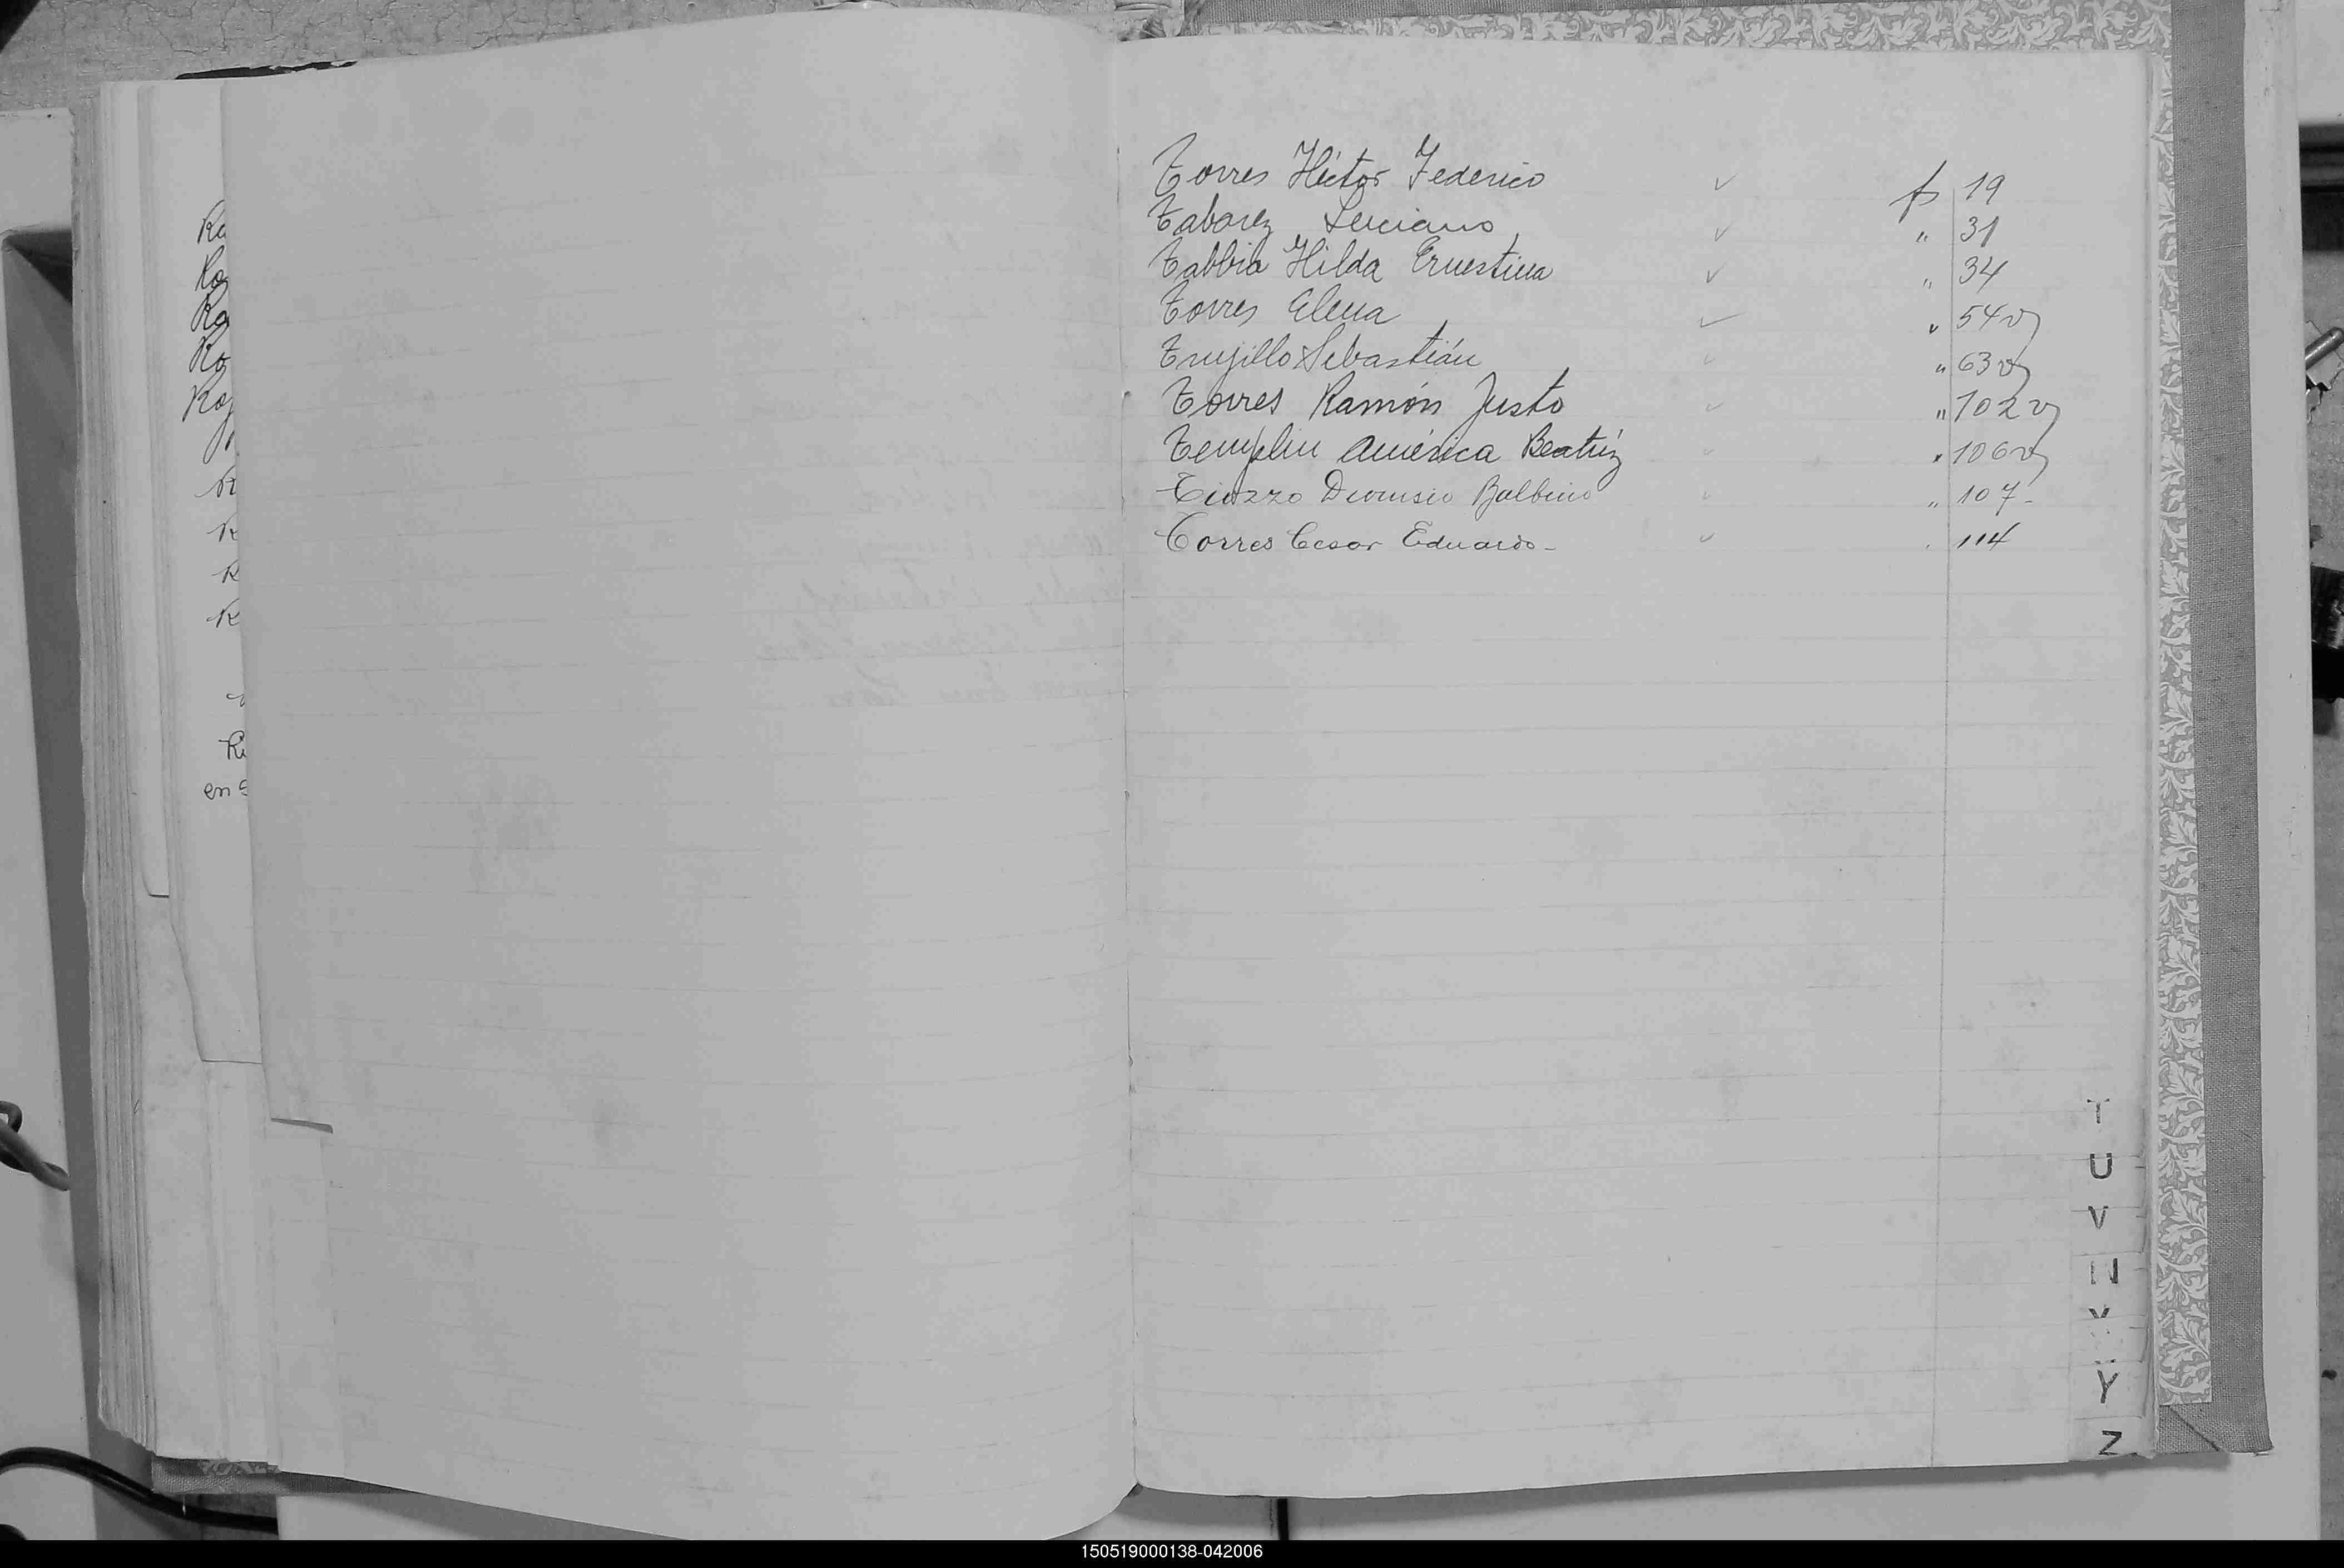 Torres Héctor Federico ✓ fs 19
Tabarez Luciano ✓ " 31
Tabbia Hilda Ernestina ✓ " 34
Torres Elena ✓ " 54v
Trujillo Sebastián ✓ " 63v
Torres Ramón Justo ✓ " 102v
Templin América Beatríz ✓ " 106v
Dionisio Balbino ✓ " 107-
Torres Cesar Eduardo - ✓ " 114
T
U
V
Y
Z
150519000138-042006